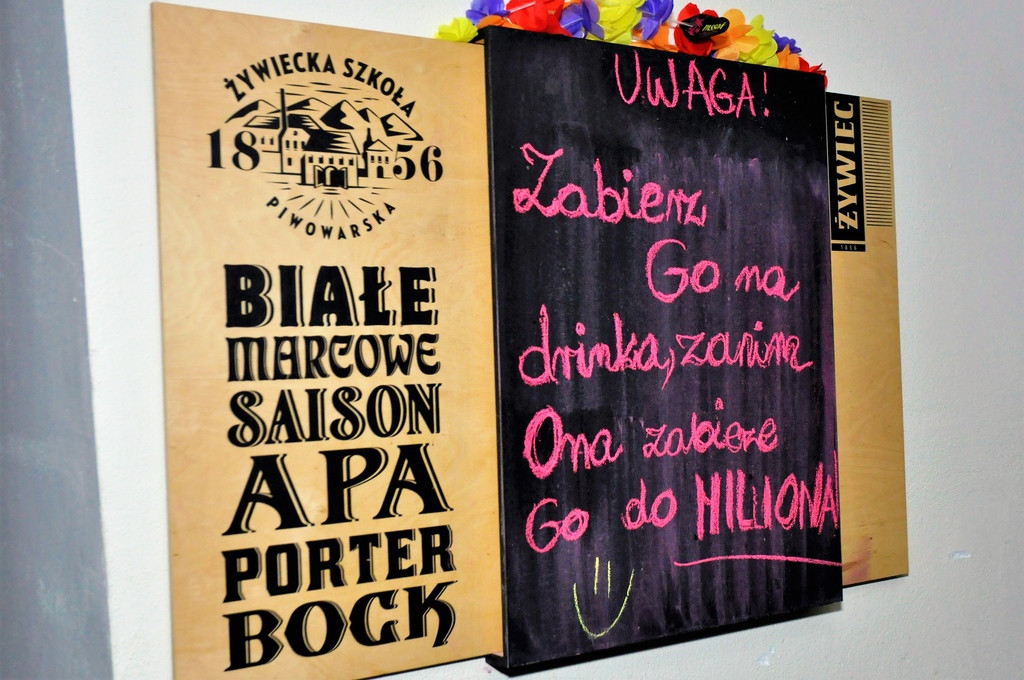 ŻYWIECKA SZKOŁA
1856
PIWOWARSKA
BIAŁE
MARCOWE
SAISON
APA
PORTER
BOCK
UWAGA!
Zabierz
Go na
drinka, zanim
Ona zabierze
Go do MILLIONA
ŻYWIEC
1856